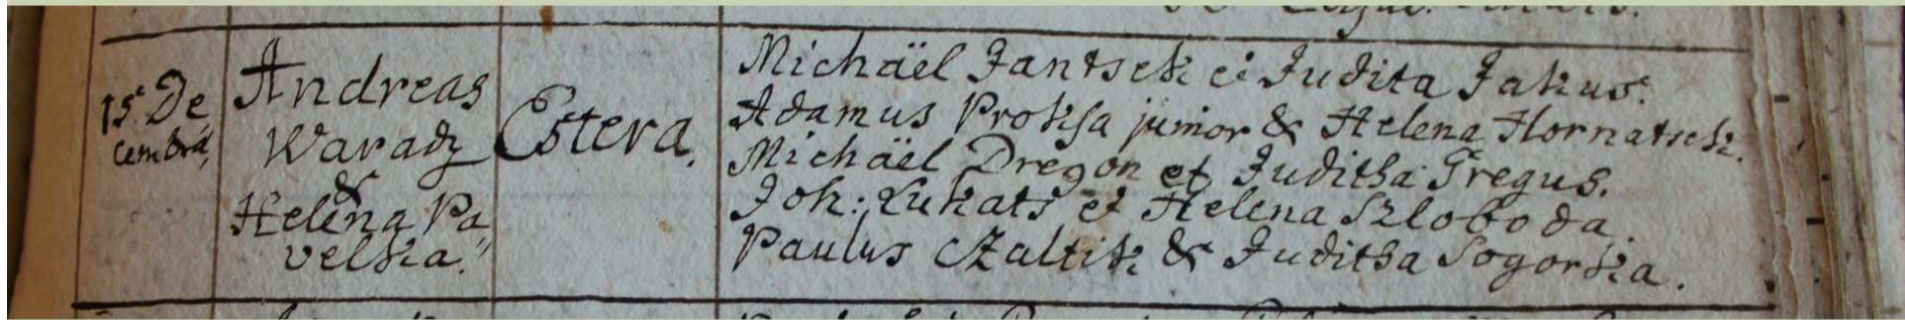 15. De
cembra,
Andreas
Warady
&
Helena Pa
velka."
Estera.
Michäel Jantsek et Judita Jakus.
Adamus Proksa junior & Helena Hornatsek.
Michäel Dregon et Juditha Gregus.
Joh: Lukats et Helena Szloboda.
Paulus Czaltik & Juditha Sogorka.